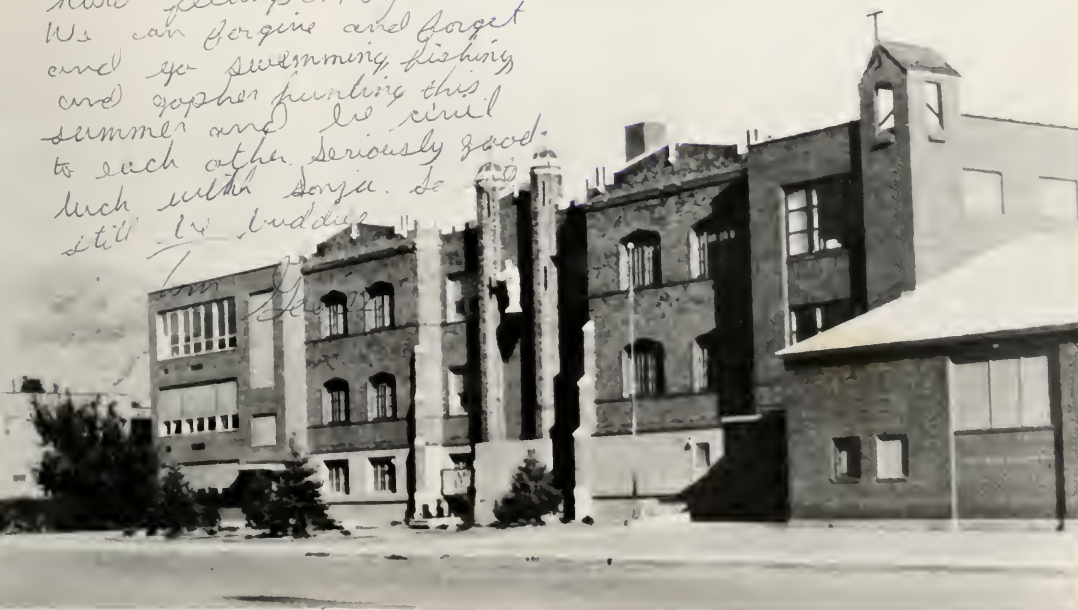 hard feelings
We can forgive and forget
and go swimming, fishing
and gopher hunting this
summer and be civil
to each other. Seriously good
luck with Sonja. So
still be buddies